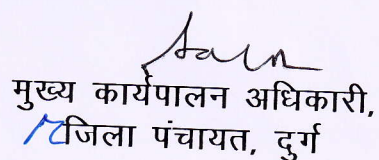 मुख्य कार्यपालन अधिकारी,
जिला पंचायत, दुर्ग